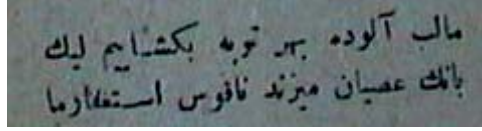 مالب آلوده بهر توبه بکشاییم لیك
بانك عصیان میزند ناقوس استغفار ما